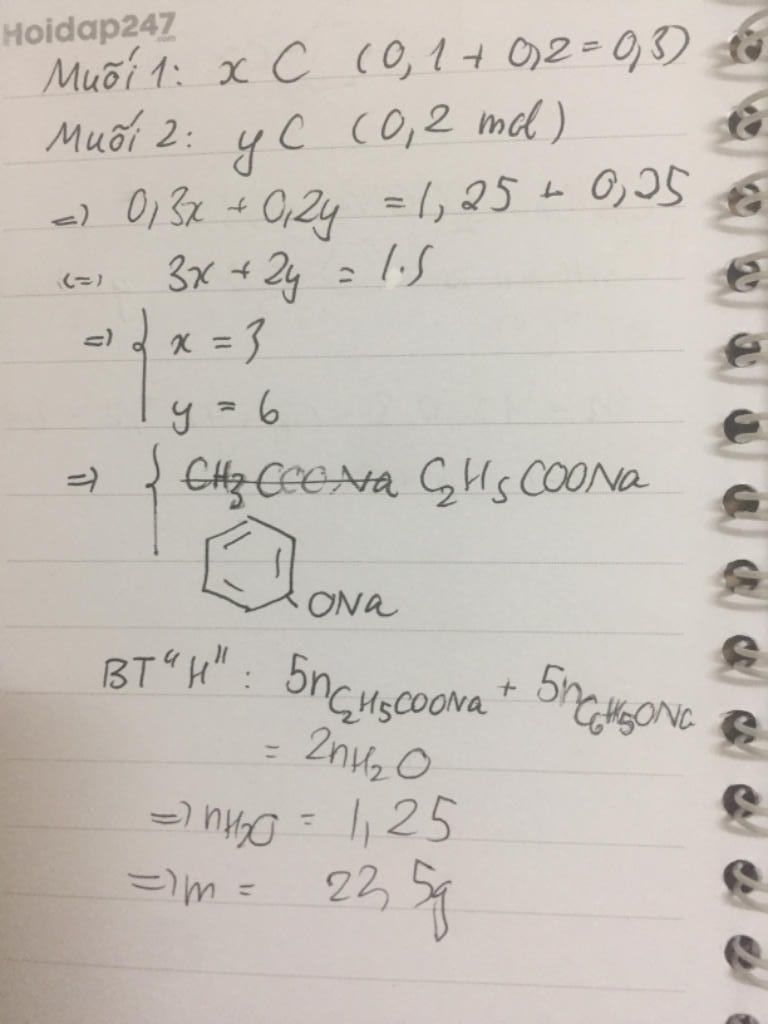 Hoidap247
.com
Muối 1: x C (0,1 + 0,2 = 0,3)
Muối 2: y C (0,2 mol)
=) 0,3x + 0,2y = 1,25 + 0,25
(=) 3x + 2y = 15
=) { x = 3
y = 6
=) { CH3COONa C2H5COONa
ONa
BT "H": 5nC2H5COONa + 5nC6H5ONa
= 2nH2O
=) nH2O = 1,25
=) m = 22,5g